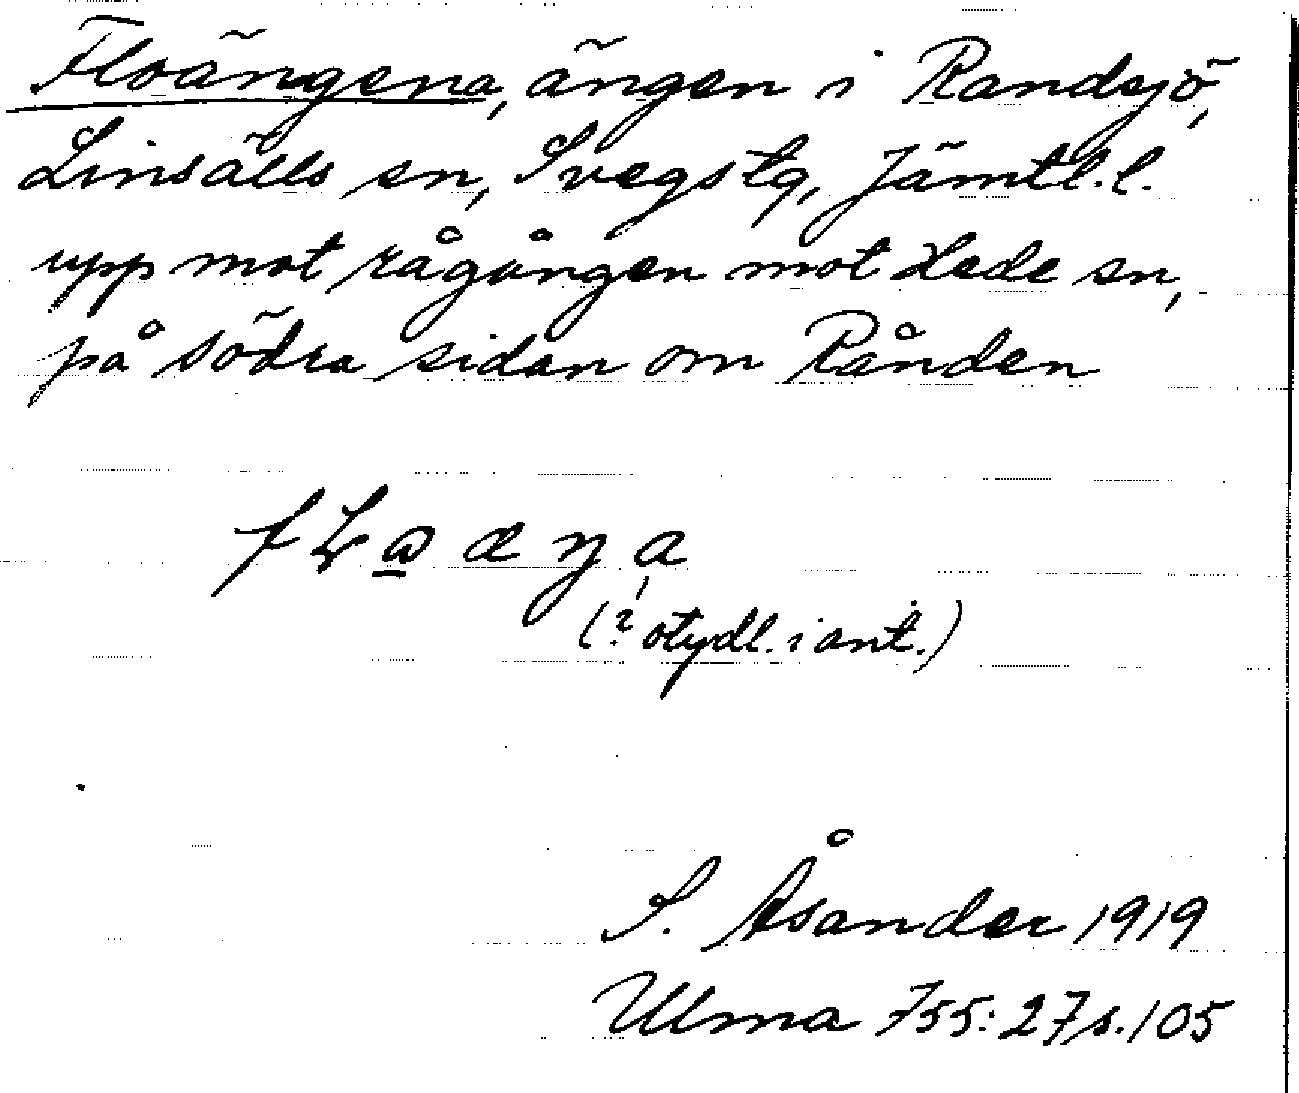 Floängena, ängen i Randsjö,
Linsälls sn, Svegs tg, Jämtl. l.
upp mot rågången mot Hede sn,
på södra sidan om Rånden
(? otydl. i ant.)
S. Åsander 1919
Ulma 755:27 s. 105